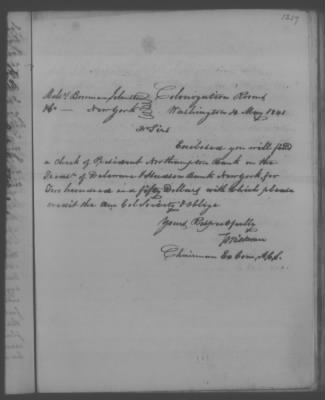 1259
Colonization Rooms
New York Washington 14 May 1841
Sirs
Enclosed you will find
a check of President Northampton Bank on the
of Delaware & Hudson Bank New York for
Two hundred and fifty Dollars with which please
credit the Am Col Society & oblige
Yours Respectfully
Chairman Ex Com, A.C.S.